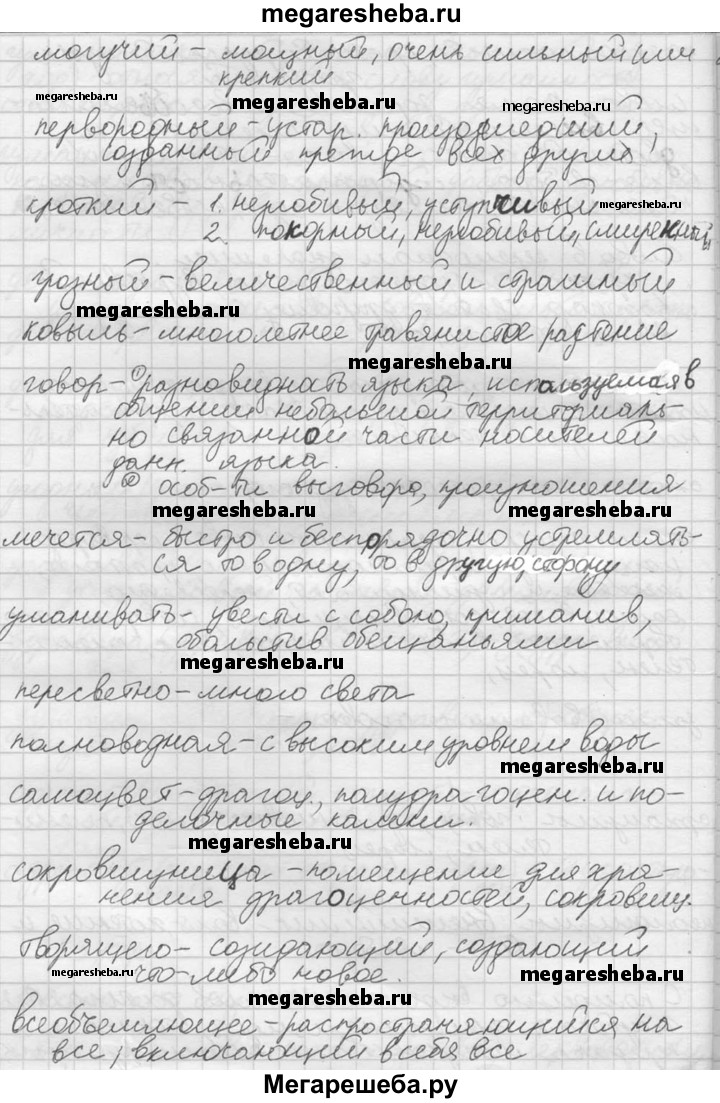 megaresheba.ru
могучий – мощный, очень сильный или
крепкий
megaresheba.ru megaresheba.ru megaresheba.ru
первородный – устар. произошедший,
созданный прежде всех других
кроткий – 1. незлобивый, уступчивый megaresheba.ru
2. покорный, незлобивый, смиренный
грозный – величественный и страшный
megaresheba.ru
ковыль – многолетнее травянистое растение
megaresheba.ru
говор – ① разновидность языка, используемая в
общении небольшой территориаль-
но связанной части носителей
данн. языка.
② особ-ти выговора, произношения
megaresheba.ru megaresheba.ru
мечется – быстро и беспорядочно устремлять-
ся то в одну, то в другую сторону
уманивать – увести с собою, приманив,
обольстив обещаньями
megaresheba.ru
пересветно – много света
полноводная – с высоким уровнем воды
megaresheba.ru
самоцвет – драгоц., полудрагоцен. и по-
делочные камни.
megaresheba.ru
сокровищница – помещение для хра-
нения драгоценностей, сокровищ.
творящего – созидающий, создающий
megaresheba.ru что-либо новое. megaresheba.ru
megaresheba.ru
всеобъемлющее – распространяющийся на
все, включающий в себя все
Мегарешеба.ру